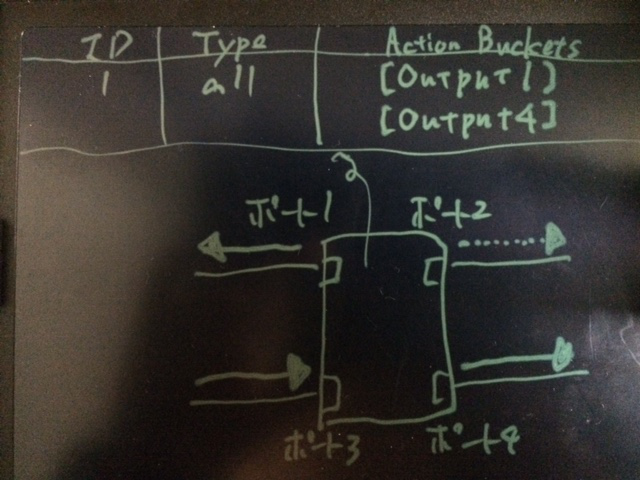 ID Type Action Buckets
1 all [Output1]
[Output4]
2
ポート1 ポート2
ポート3 ポート4